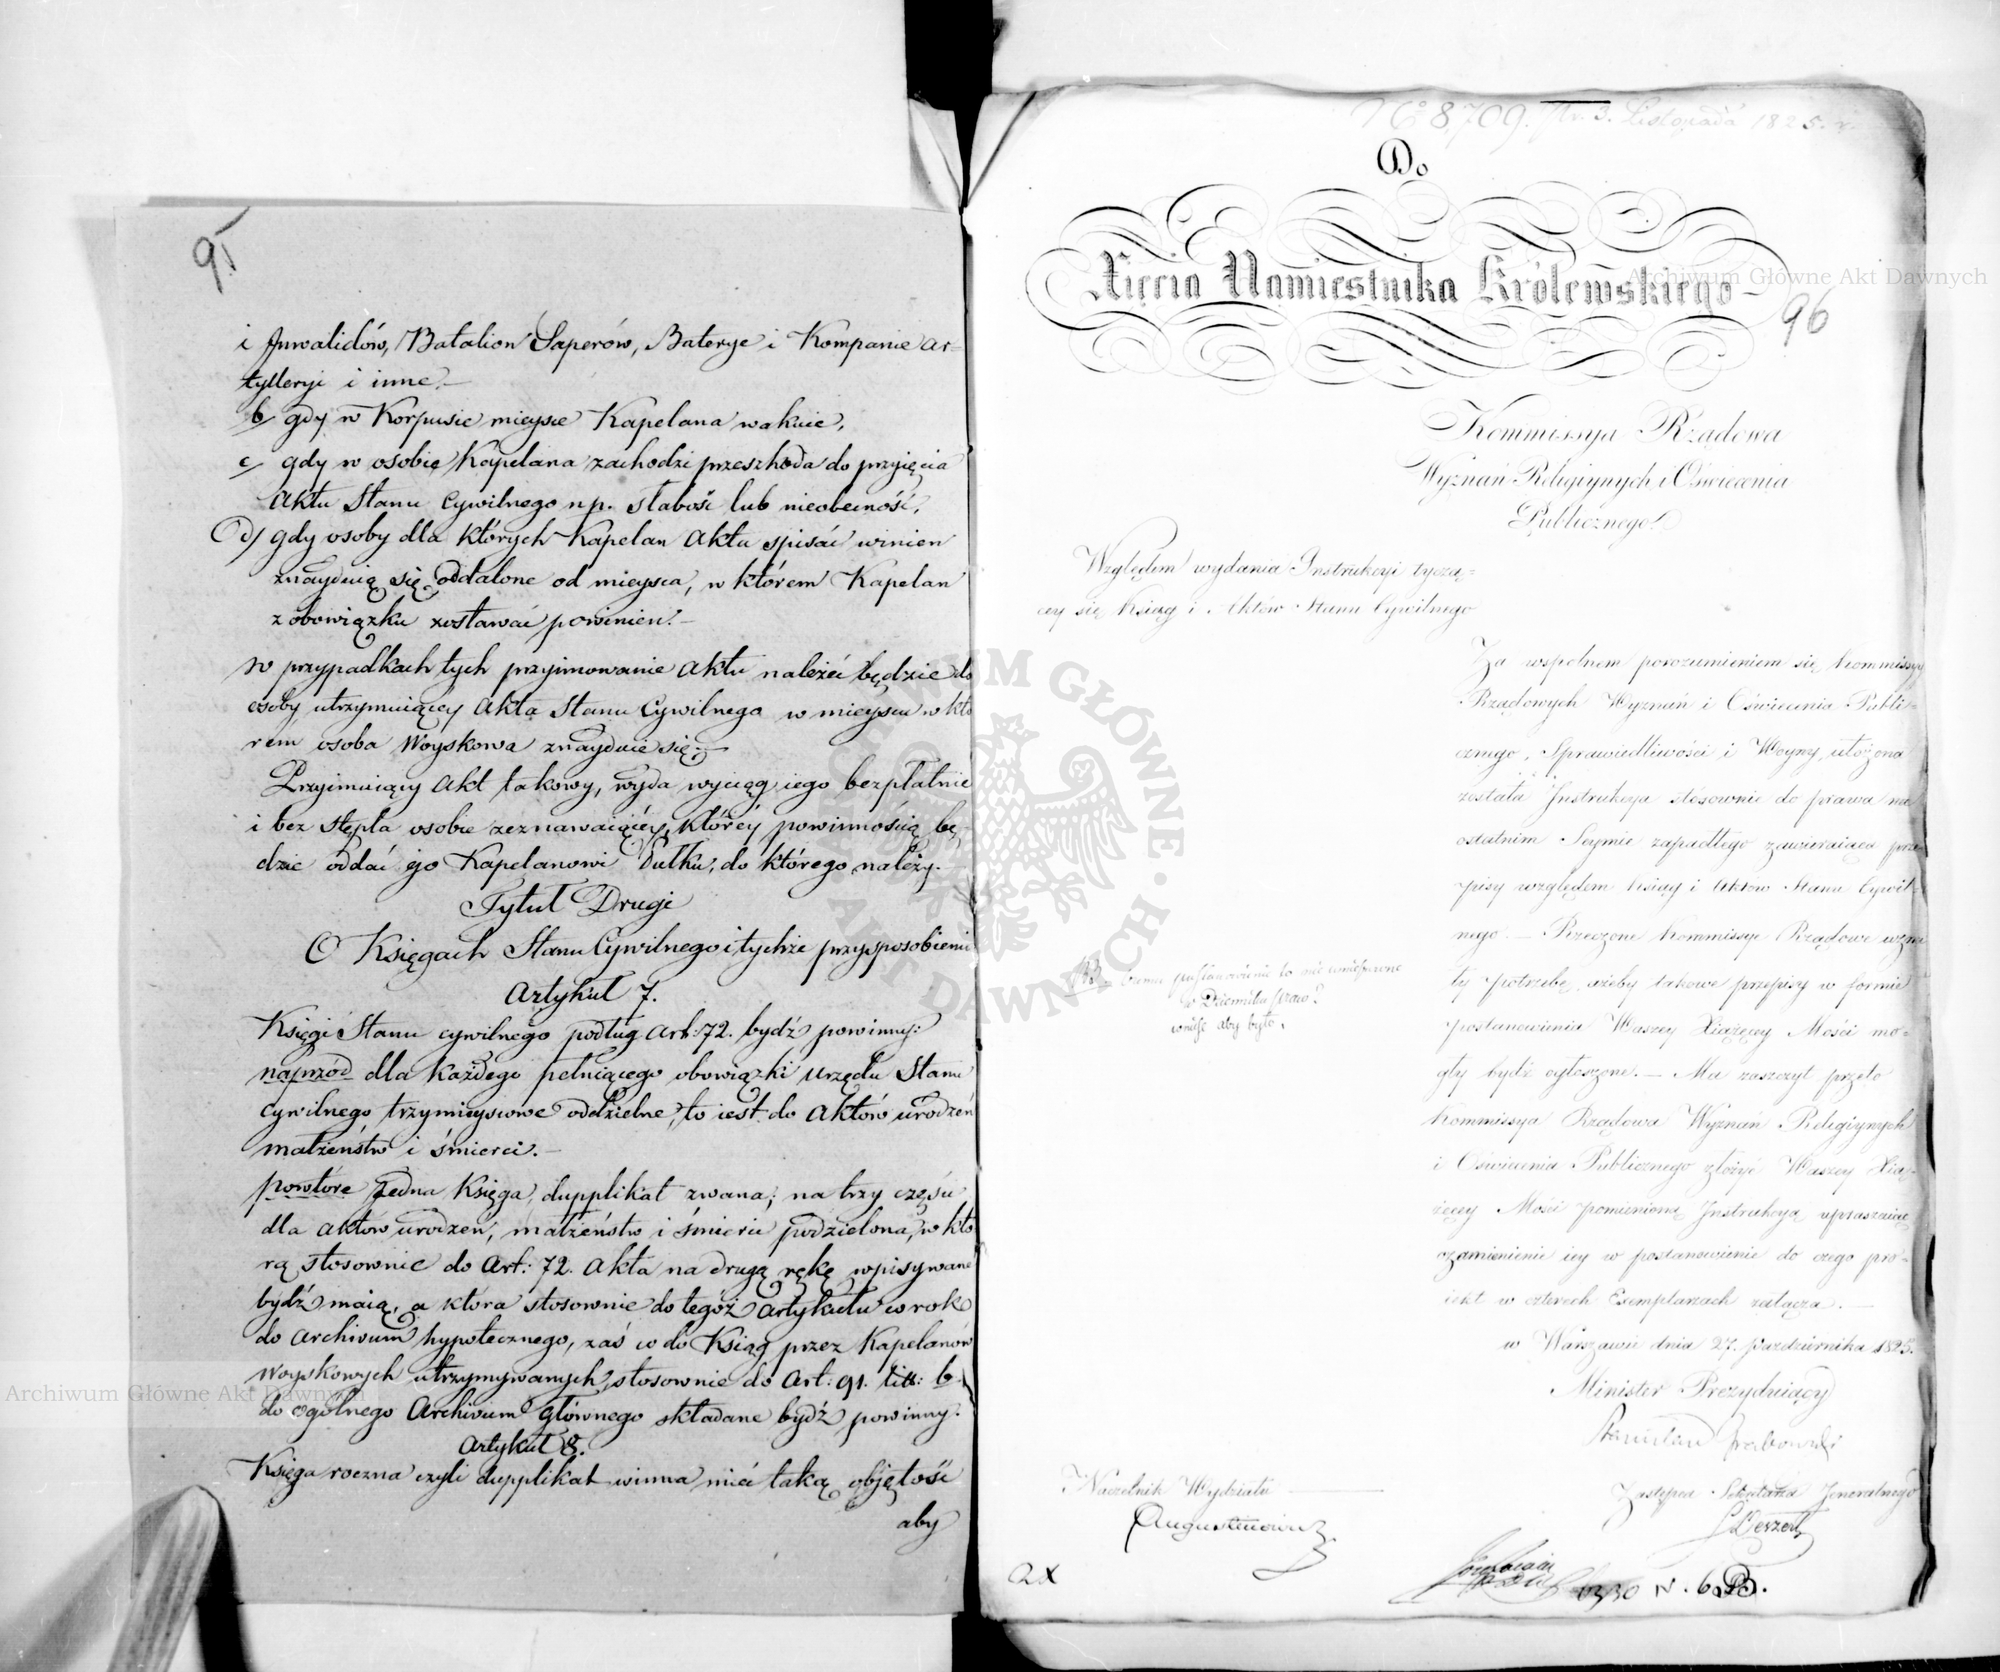 95
i Jnwalidów, Batalion Saperów, Baterye i Kompanie ar=
tylleryi i inne.—
b/ gdy w Korpusie mieysce Kapelana wakuie,
c/ gdy w osobie Kapelana zachodzi przeszkoda do przyięcia
Aktu Stanu Cywilnego np. słabość lub nieobecność,
d/ gdy osoby dla których Kapelan Akta spisać winien
znayduią się oddalone od mieysca, w którem Kapelan
z obowiązku zostawać powinien.—
w przypadkach tych przyimowanie Aktu należeć będzie do
osoby utrzymuiącey Akta Stanu Cywilnego w mieyscu w któ
rem osoba Woyskowa znayduie się.—
Przyimuiący Akt takowy, wyda wyciąg iego bezpłatnie
i bez stępla osobie zeznawaiącéy, któréy powinnością bę
dzie oddać go Kapelanowi Pułku, do którego należy.
Tytuł Drugi
O Księgach Stanu Cywilnego i tychże przysposobieniu
Artykuł 7.
Księgi Stanu cywilnego podług Art: 72. bydź powinny:
naprzód dla każdego pełniącego obowiązki Urzędu Stanu
Cywilnego, trzymieyscowe oddzielne, to iest do Aktów urodzeń
małżeństw i śmierci.—
powtóre Jedna Księga dupplikat zwana, na trzy części
dla aktów urodzeń, małżeństw i śmierci podzielona, w któ
rą stosownie do Art: 72. Akta na drugą rękę wpisywane
bydź maią, a która stosownie do tegóż Artykułu co rok
do Archivum hypotecznego, zaś co do Ksiąg przez Kapelanów
Woyskowych utrzymywanych, stosownie do Art: 91. litt: b.
do ogólnego Archivum głównego składane bydź powinny.
Artykuł 8.
Księga roczna czyli dupplikat winna mieć taką objętość
aby
No 8,709. 3. Listopada 1825. r.
Do
Xięcia Namiestnika Królewskiego
96
Kommissya Rządowa
Wyznań Religiynych i Oświecenia
Publicznego.
Względem wydania Instrukcyi tyczą=
cey się Ksiąg i Aktów Stanu Cywilnego
Za wspolnem porozumieniem się Kommissyy
Rządowych Wyznań i Oświecenia Publi=
cznego, Sprawiedliwości i Woyny, ułożona
została Instrukcya stosownie do prawa na
ostatnim Seymie zapadłego zawieraiąca prze
pisy względem Ksiąg i Aktów Stanu Cywil=
nego.— Rzeczone Kommissye Rządowe uzna
ły potrzebę, ażeby takowe przepisy w formie
postanowienia Waszey Xiążęcey Mości mo=
gły bydź ogłoszone.— Ma zaszczyt przeto
Kommissya Rządowa Wyznań Religiynych
i Oświecenia Publicznego złożyć Waszey Xią=
żęcey Mości pomienioną Instrukcyą upraszaiąc
o zamienienie iey w postanowienie do czego pro=
iekt w czterech Exemplarzach załącza.—
w Warszawie dnia 27. Października 1825.
Minister Prezyduiący
Stanisław Grabowski
NB. postanowienie to nie umieszczone
w Dzienniku praw?
aby było.
Naczelnik Wydziału
Augustinowicz
Zastępca Sekretarza Jeneralnego
ax
N. 6
Archiwum Główne Akt Dawnych
Archiwum Główne Akt Dawnych
ARCHIWUM GŁÓWNE · AKT DAWNYCH ·